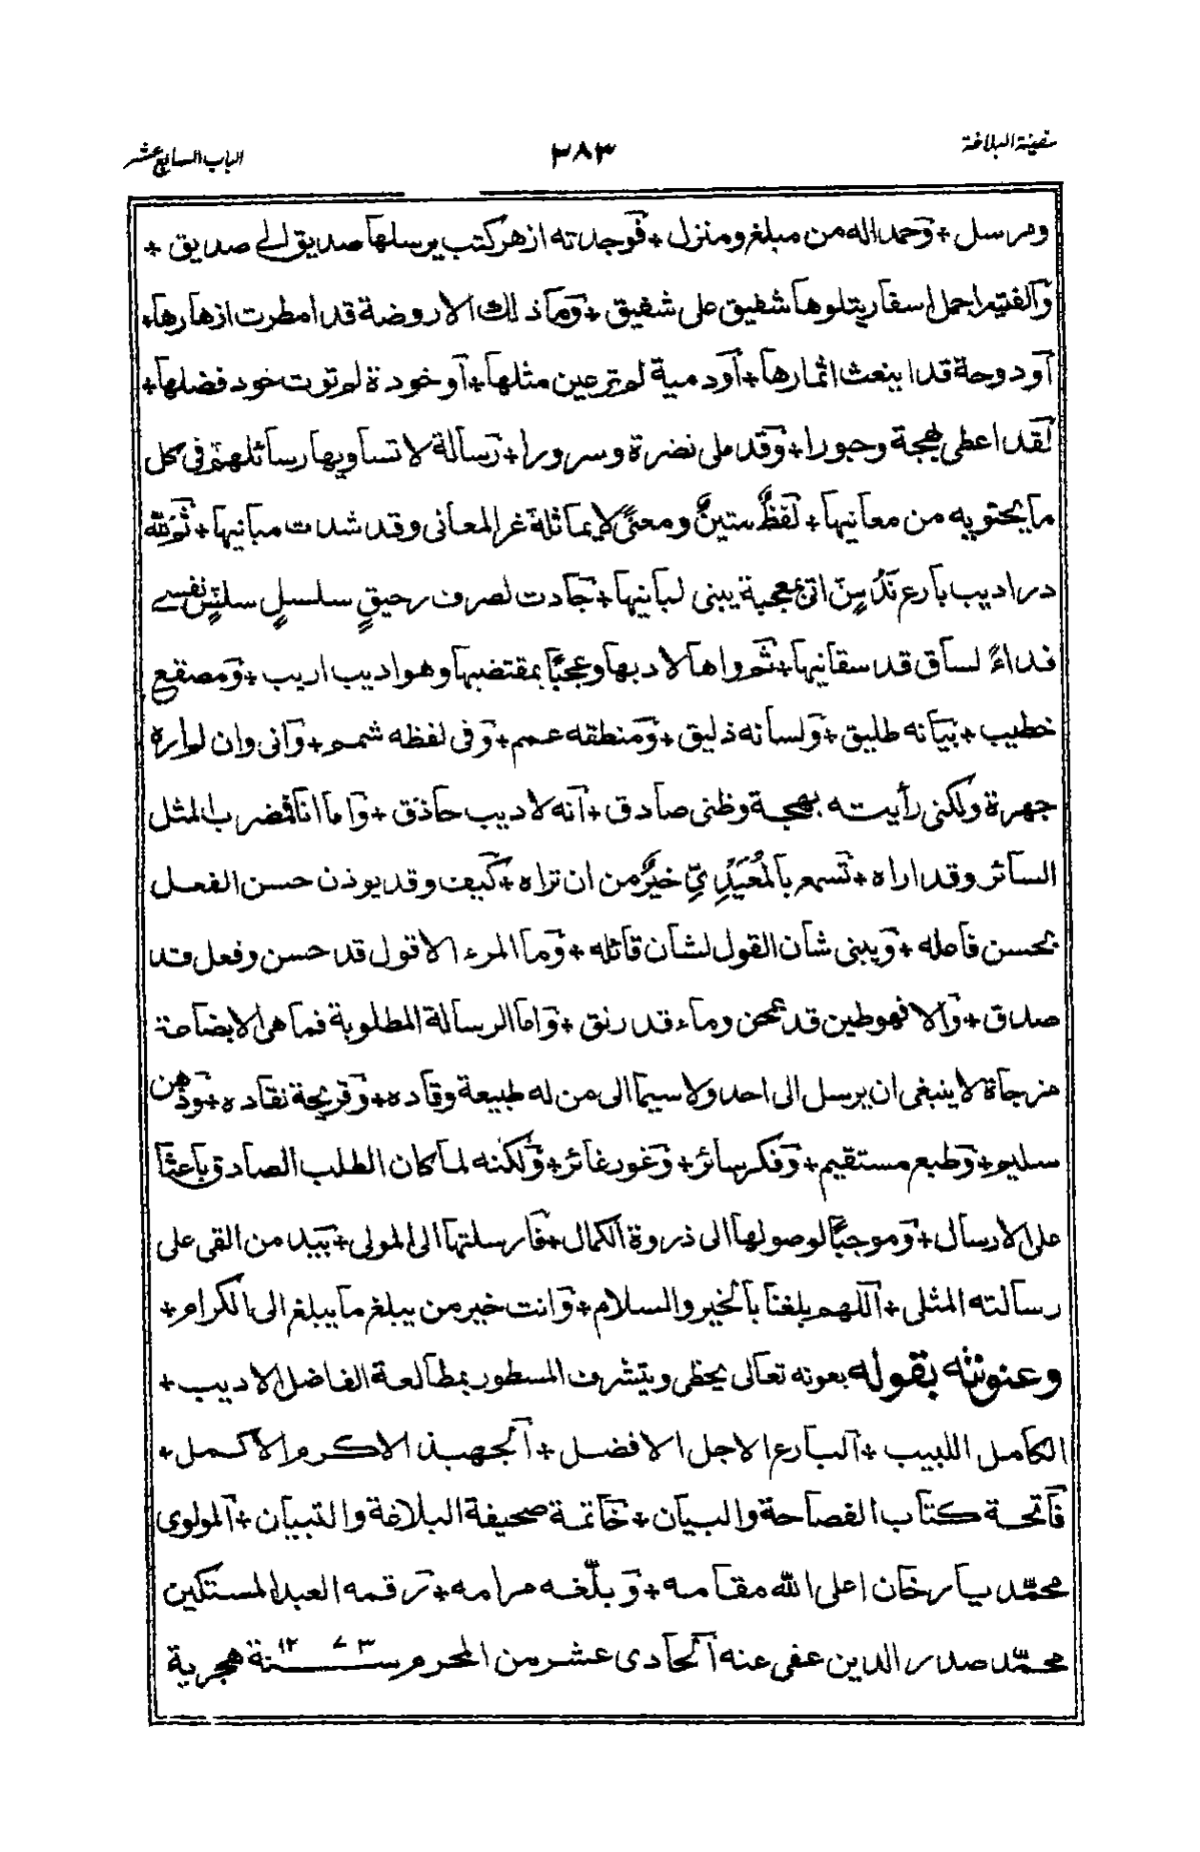 سفينة البلاغة ٣٨٣ الباب السابع عشر
ومرسل + وحمدا له من مبلغ ومنزل + فوجدته ازهر كتب يرسلها صديق الى صديق +
والفيته اجمل اسفار يتلوها شفيق على شفيق + وما ذلك الا روضة قد امطرت ازهارها +
او دوحة قد اينعت اثمارها + او دمية لم تر عين مثلها + او خودة لم تؤت خود فضلها +
لقد اعطى بهجة وحبورا + وقد ملى نضرة وسرورا + رسالة لا تساويها رسائلهم فى كل
ما يحتويه من معانيها + لفظٌ متينٌ ومعنىً لا يماثله غر المعانى وقد شدت مبانيها + ثم لله
در اديب بارع ندسٍ اتى بمعجبة يبنى لبانيها + جادت لصرف رحيقٍ سلسلٍ سلسٍ نفسى
فداءً لساق قد سقانيها + ثم واها لادبها وعجبًا بمقتضبها وهو اديب اريب + ومصقع
خطيب + بيانه طليق + ولسانه ذليق + ومنطقه عمم + وفى لفظه شمم + وانى وان لم اره
جهرة ولكنى رأيته بهجة وظنى صادق + انه لاديب حاذق + واما انا فيضرب بالمثل
السائر وقد اراه + تسمع بالمُعَيْدِيِّ خيرٌ من ان تراه + كيف وقد يوذن حسن الفعل
بحسن فاعله + ويبنى شان القول لشان قائله + وما المرء الا قول قد حسن وفعل قد
صدق + والا فهو طين قد عجن وماء قد رنق + واما الرسالة المطلوبة فما هى الا بضاعة
مزجاة لا ينبغى ان يرسل الى احد ولا سيما الى من له طبيعة وقاده + وقريحة نقاده + وذهن
سليم + وطبع مستقيم + وفكر سائر + وغور غائر + ولكنه لما كان الطلب الصادق باعثا
على الارسال + وموجبًا لوصولها الى ذروة الكمال + فارسلتها الى المولى + بيد من القى على
رسالته المثلى + اللهم بلغنا بالخير والسلام + وانت خير من يبلغ ما يبلغ الى الكرام +
وعنونته بقوله بعونه تعالى يحظى ويتشرف المسطور بمطالعة الفاضل الاديب +
الكامل اللبيب + البارع الاجل الافضل + الجهبذ الاكرم الاكمل +
فاتحة كتاب الفصاحة والبيان + خاتمة صحيفة البلاغة والتبيان + المولوى
محمّد يار خان اعلى الله مقامه + وبلّغه مرامه + رقمه العبد المستكين
محمّد صدر الدين عفى عنه الحادى عشر من المحرم سنة ١٢٧٣ هجرية